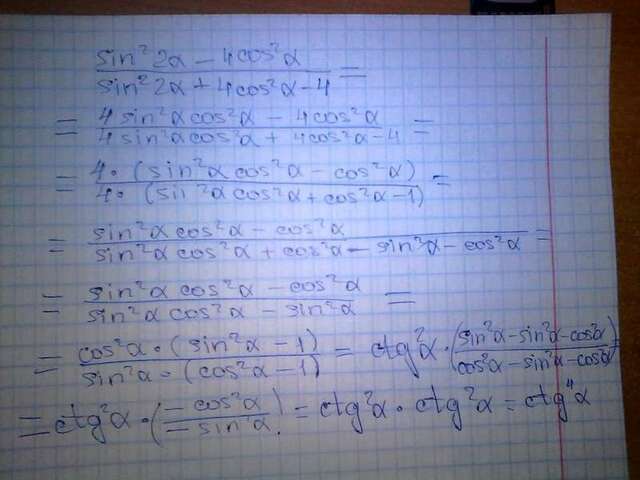 (sin²2α − 4cos²α)/(sin²2α + 4cos²α − 4) =
= (4sin²α cos²α − 4cos²α)/(4sin²α cos²α + 4cos²α − 4) =
= (4·(sin²α cos²α − cos²α))/(4·(sin²α cos²α + cos²α − 1)) =
= (sin²α cos²α − cos²α)/(sin²α cos²α + cos²α − sin²α − cos²α) =
= (sin²α cos²α − cos²α)/(sin²α cos²α − sin²α) =
= (cos²α·(sin²α − 1))/(sin²α·(cos²α − 1)) = ctg²α·((sin²α − sin²α − cos²α)/(cos²α − sin²α − cos²α)) =
= ctg²α·((−cos²α)/(−sin²α)) = ctg²α · ctg²α = ctg⁴α